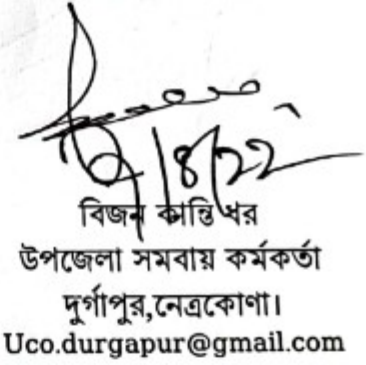 বিজন কান্তি ধর
উপজেলা সমবায় কর্মকর্তা
দুর্গাপুর,নেত্রকোণা।
Uco.durgapur@gmail.com